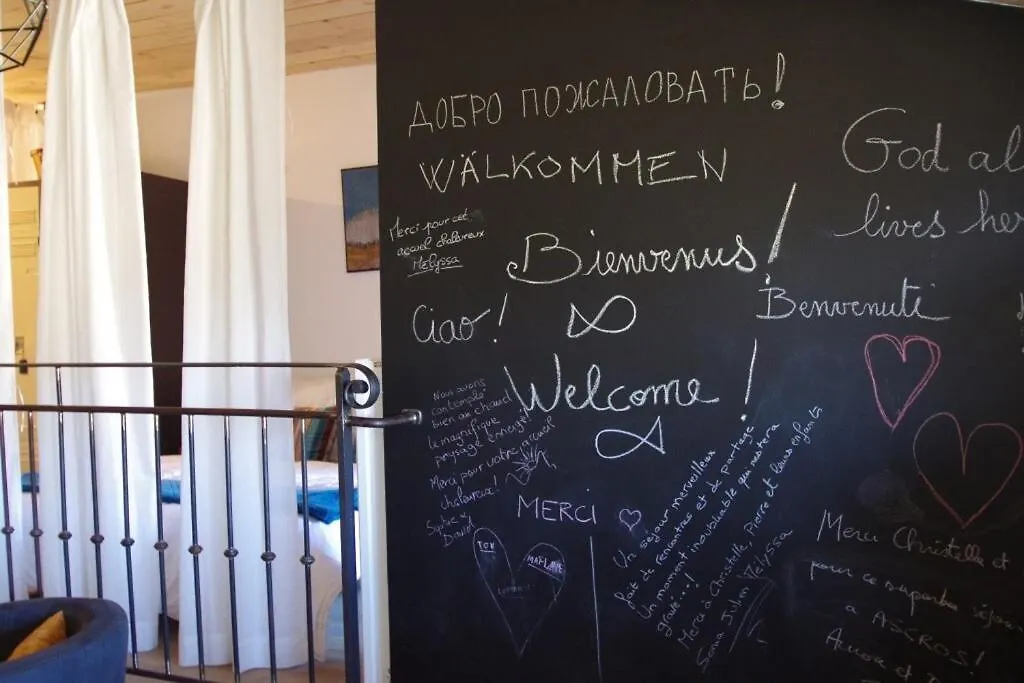 ДОБРО ПОЖАЛОВАТЬ!
WÄLKOMMEN
God al
lives her
Merci pour cet
accueil chaleureux
Mélyssa
Bienvenus!
Benvenuti
Ciao!
Welcome!
Nous avons
contemplé
bien au chaud
le magnifique
paysage enneigé!
Merci pour votre accueil
chaleureux!
Sophie et
David
MERCI
Un séjour merveilleux
fait de rencontres et de partage
Un moment inoubliable qui restera
gravé...!
Merci à Christelle, Pierre et leurs enfants
Sonia Julien Mélyssa
TOM
Merci Christelle et
pour ce superbe séjour
a ASCROS!